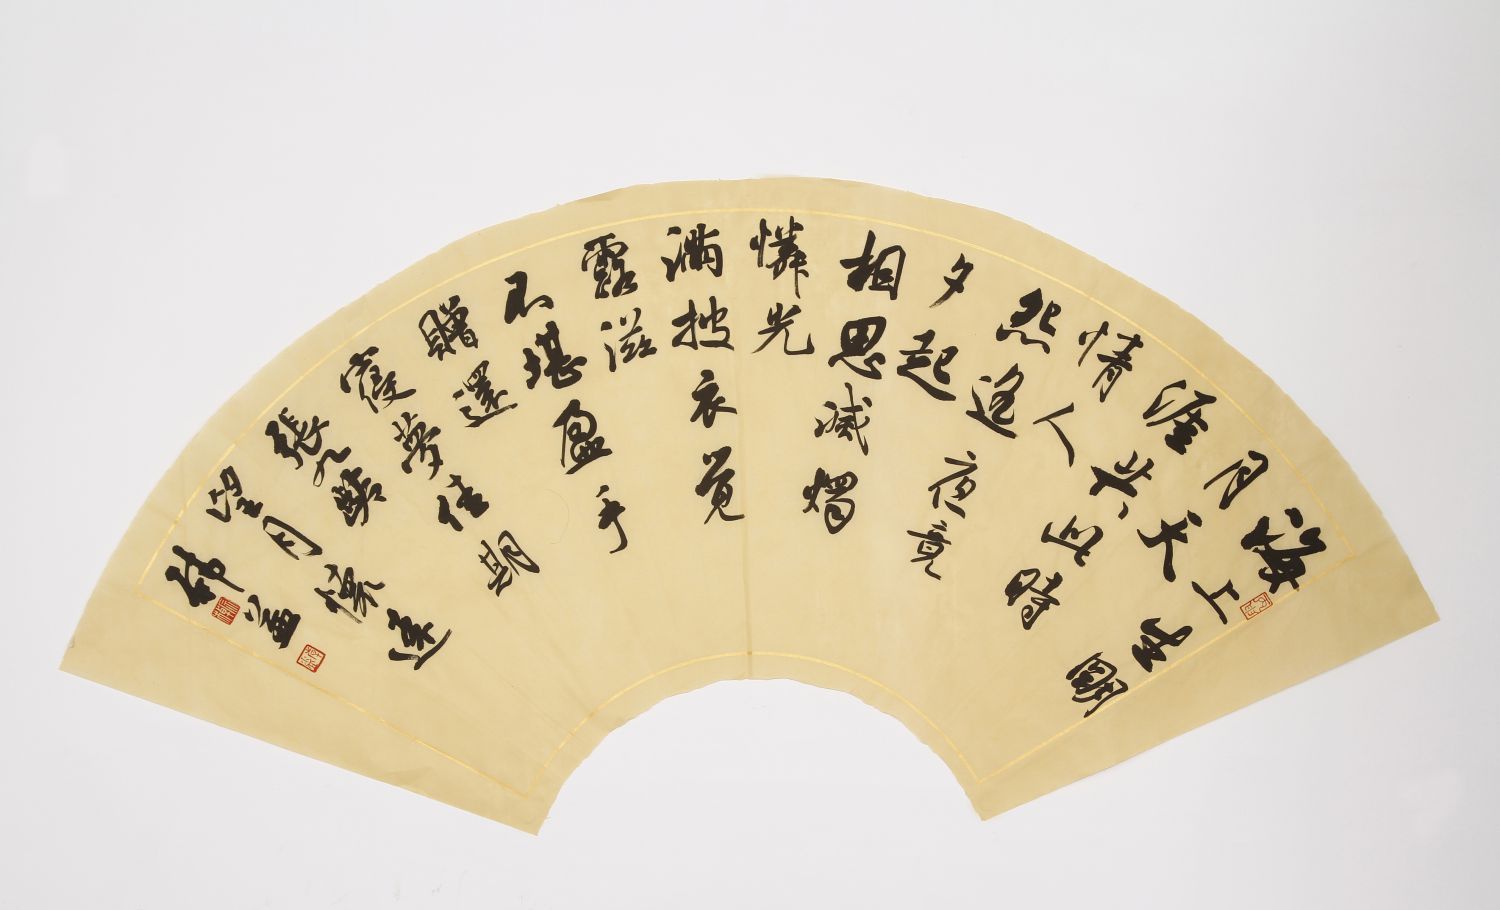 海上生明
月天
涯共此時
情人
怨遙夜竟
夕起
相思滅燭
憐光
滿披衣覺
露滋
不堪盈手
贈還
寢夢佳期
張九齡
望月懷遠
韓